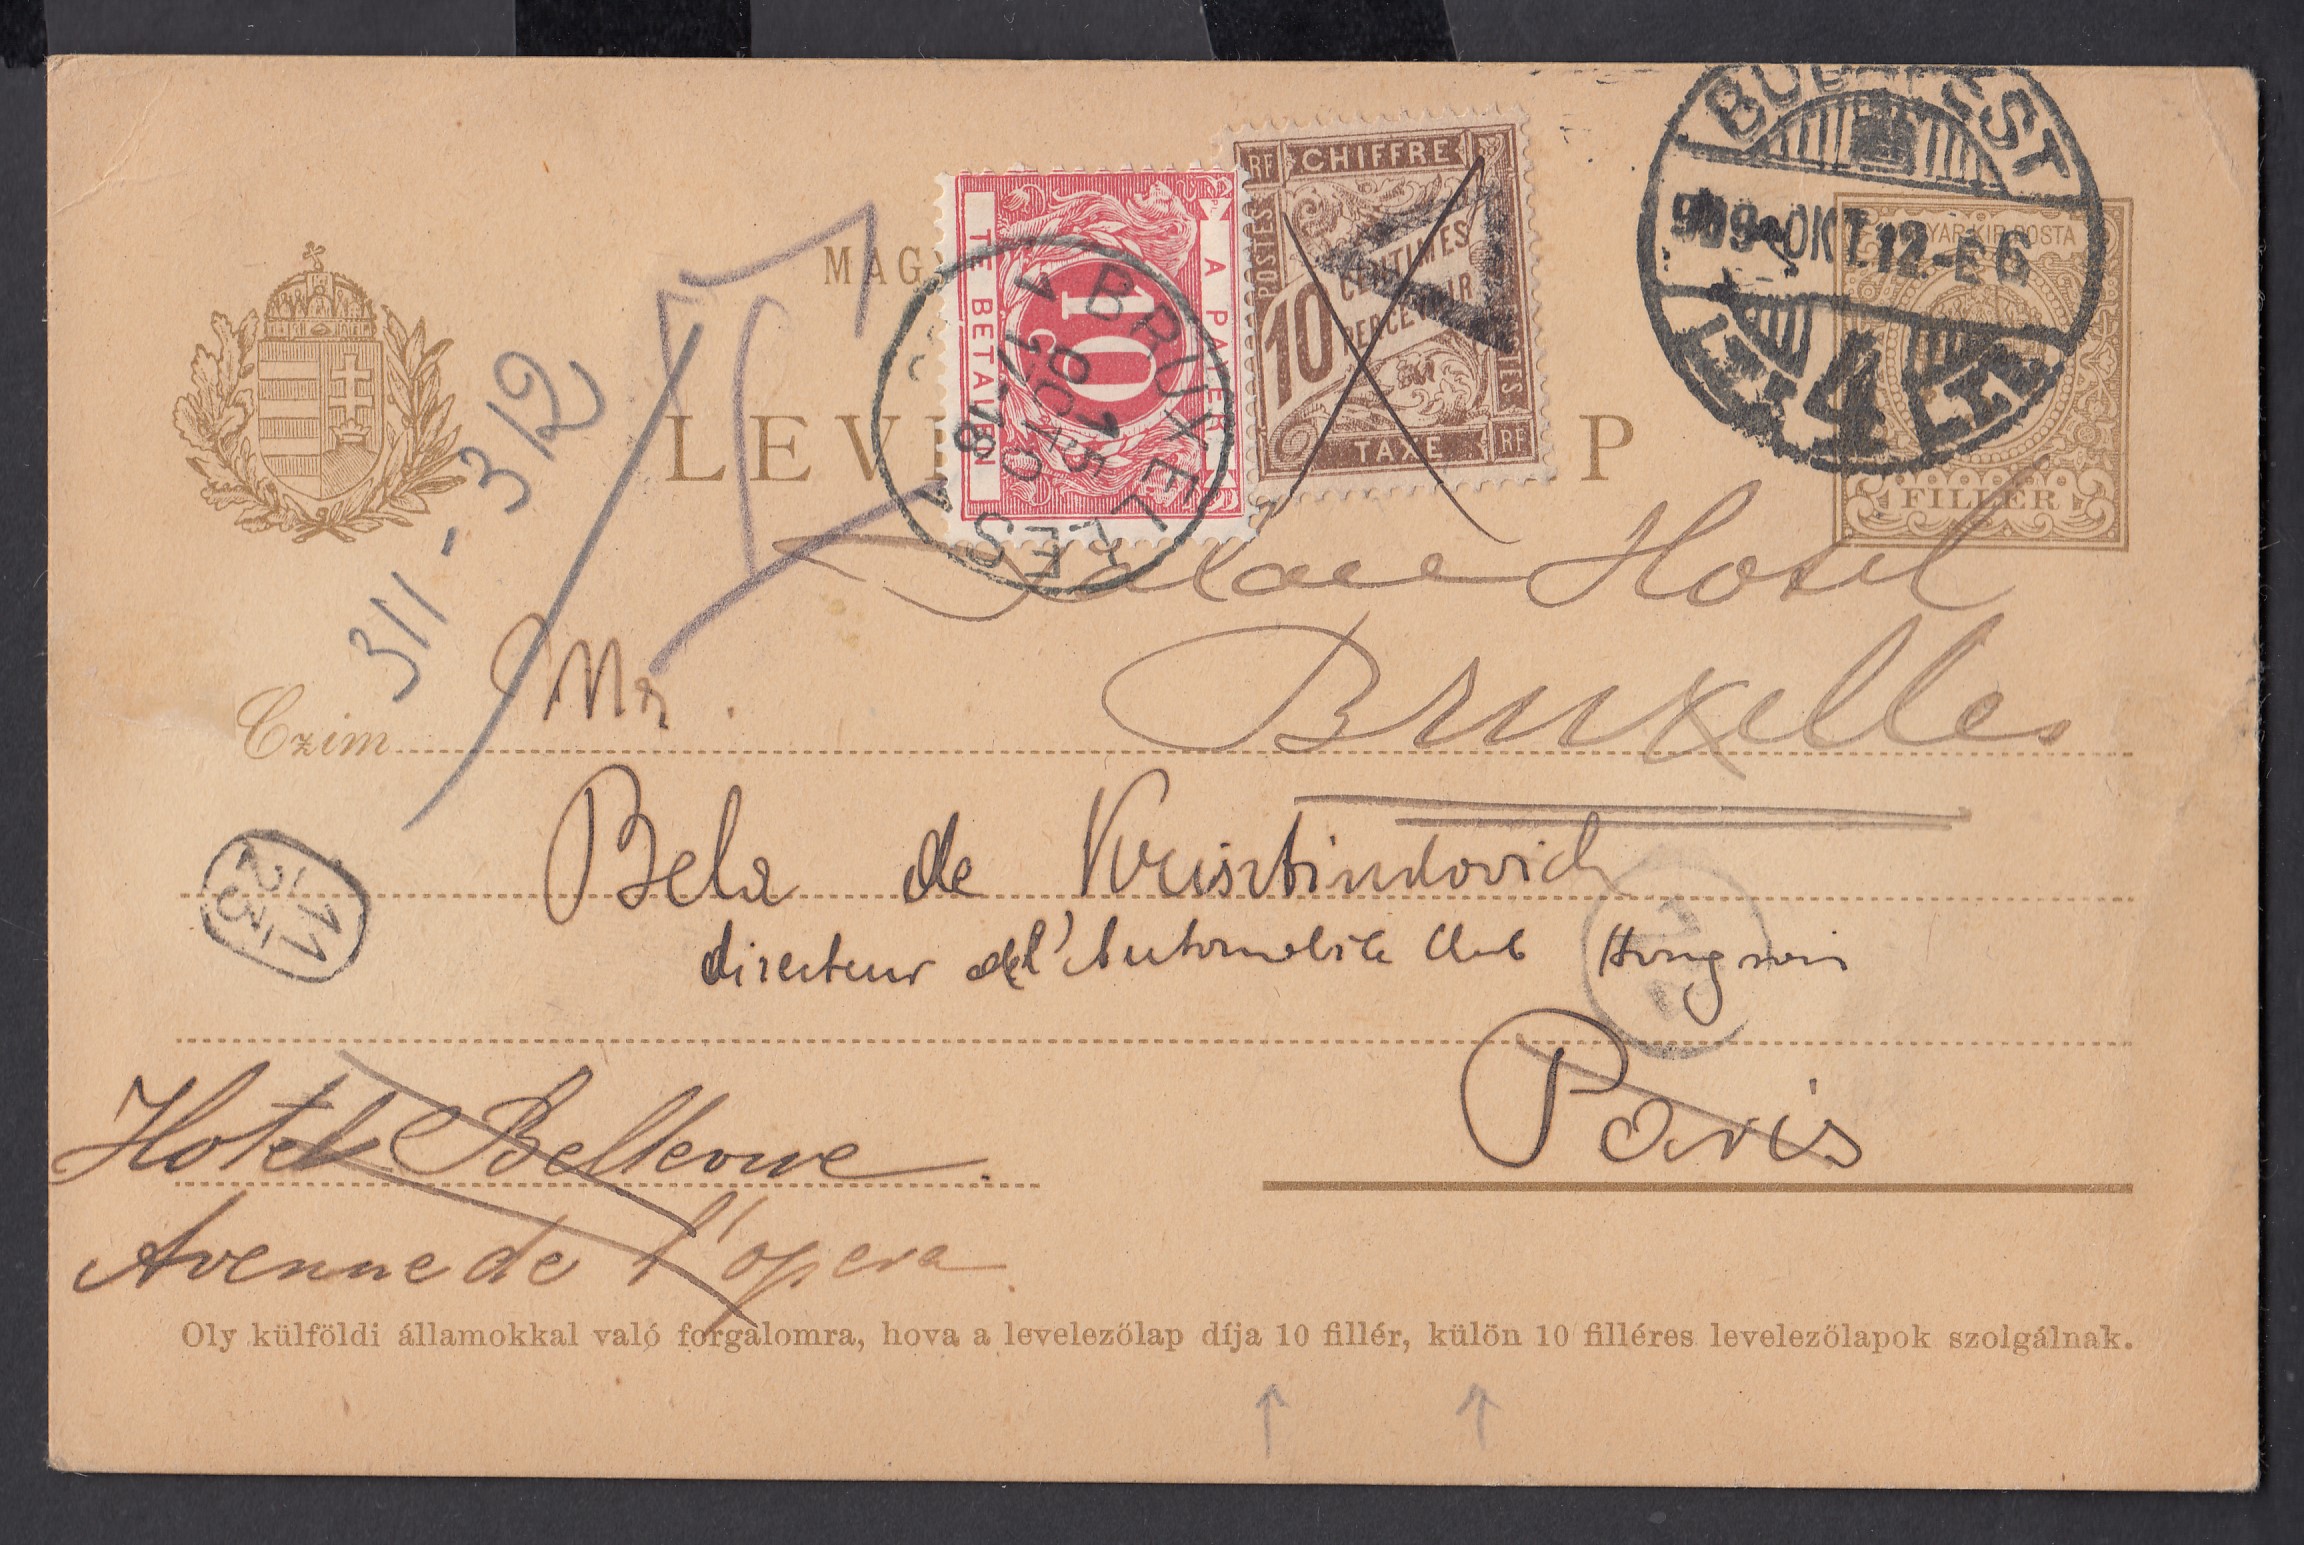 BUDAPEST
909 OKT. 12.-E 6
4
MAGYAR KIR. POSTA
FILLÉR
RF CHIFFRE
POSTES
10 CENTIMES
PERCEVOIR
TAXE RF
A PAYER
TE BETALEN
10
BRUXELLES
15 OCT
17-18
1909
MAG
LEV P
311-312
T
Palace Hotel
Bruxelles
Czim
Mr.
Bela de Krisztindovich
directeur de l'Automobile Club Hongrois
Paris
Hotel Bellevue.
Avenue de l'opera
Oly külföldi államokkal való forgalomra, hova a levelezőlap díja 10 fillér, külön 10 filléres levelezőlapok szolgálnak.